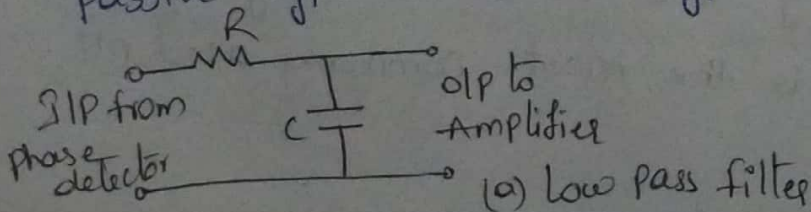 R
I/P from
phase
detector
C
O/P to
Amplifier
(a) Low pass filter